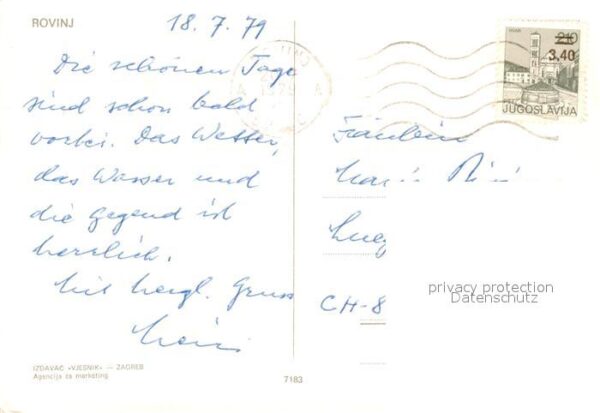 ROVINJ
18.7.79
Die schönen Tage
sind schon bald
vorbei. Das Wetter,
das Wasser und
die Gegend ist
herrlich.
Mit hergl. Gruss
IZDAVAČ «VJESNIK» — ZAGREB
Agencija za marketing
7183
HVAR
2.10
3.40
JUGOSLAVIJA
Fräulein
CH-8
privacy protection
Datenschutz